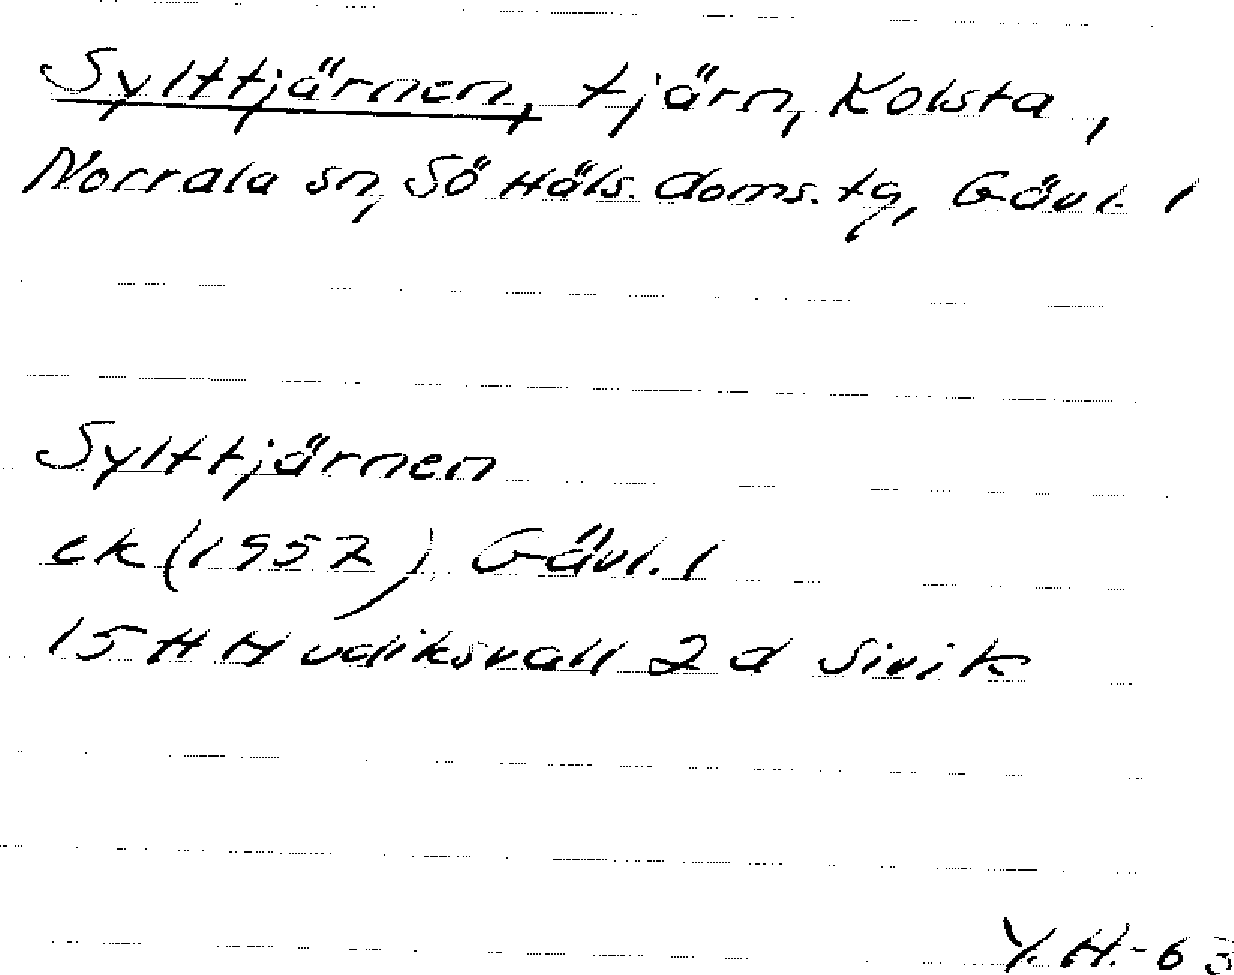 Sylttjärnen, tjärn, Kolsta,
Norrala sn, Sö Häls. doms. tg, Gävl. l
Sylttjärnen
ek (1957) Gävl. l
15 H Hudiksvall 2 d Sivik
Y.H.-63